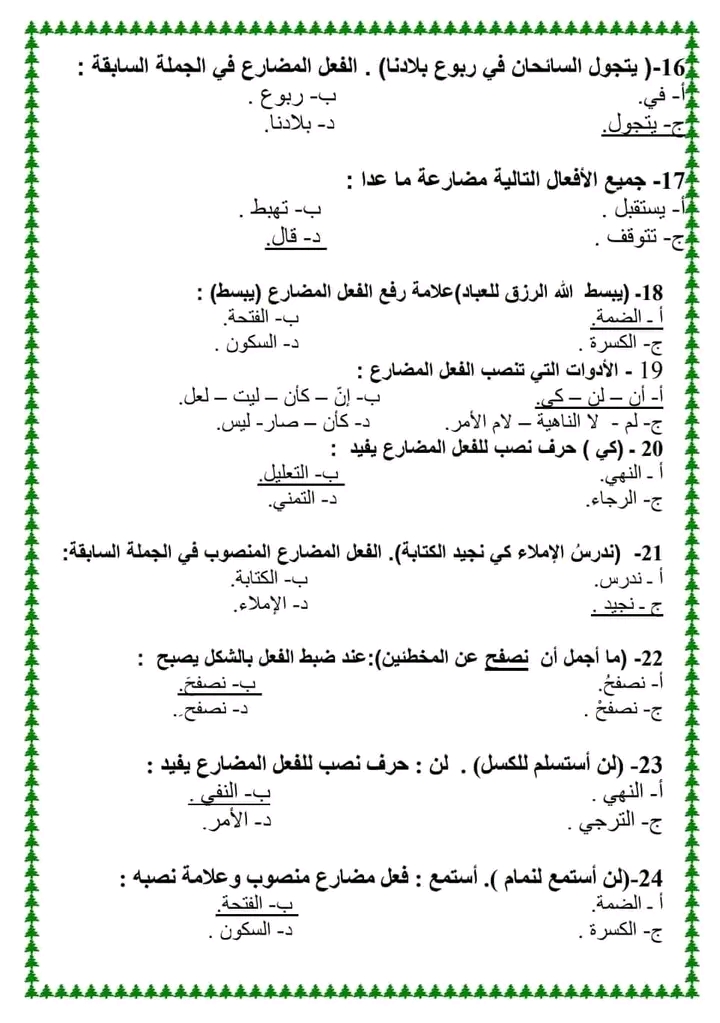 16-( يتجول السائحان في ربوع بلادنا) . الفعل المضارع في الجملة السابقة :
أ- في. ب- ربوع .
ج- يتجول. د- بلادنا.
17- جميع الأفعال التالية مضارعة ما عدا :
أ- يستقبل . ب- تهبط .
ج- تتوقف . د- قال.
18- (يبسط الله الرزق للعباد)علامة رفع الفعل المضارع (يبسط) :
أ ـ الضمة. ب- الفتحة.
ج- الكسرة . د- السكون .
19 - الأدوات التي تنصب الفعل المضارع :
أ- أن – لن – كي. ب- إنّ – كأن – ليت – لعل.
ج- لم - لا الناهية – لام الأمر. د- كأن – صار- ليس.
20 - (كي ) حرف نصب للفعل المضارع يفيد :
أ ـ النهي. ب- التعليل.
ج- الرجاء. د- التمني.
21- (ندرسُ الإملاء كي نجيد الكتابة). الفعل المضارع المنصوب في الجملة السابقة:
أ ـ ندرس. ب- الكتابة.
ج ـ نجيد . د- الإملاء.
22- (ما أجمل أن نصفح عن المخطئين):عند ضبط الفعل بالشكل يصبح :
أ- نصفحُ. ب- نصفحَ.
ج- نصفحْ . د- نصفحِ.
23- (لن أستسلم للكسل) . لن : حرف نصب للفعل المضارع يفيد :
أ- النهي . ب- النفي .
ج- الترجي . د- الأمر.
24-(لن أستمع لنمام ). أستمع : فعل مضارع منصوب وعلامة نصبه :
أ ـ الضمة. ب- الفتحة.
ج- الكسرة . د- السكون .